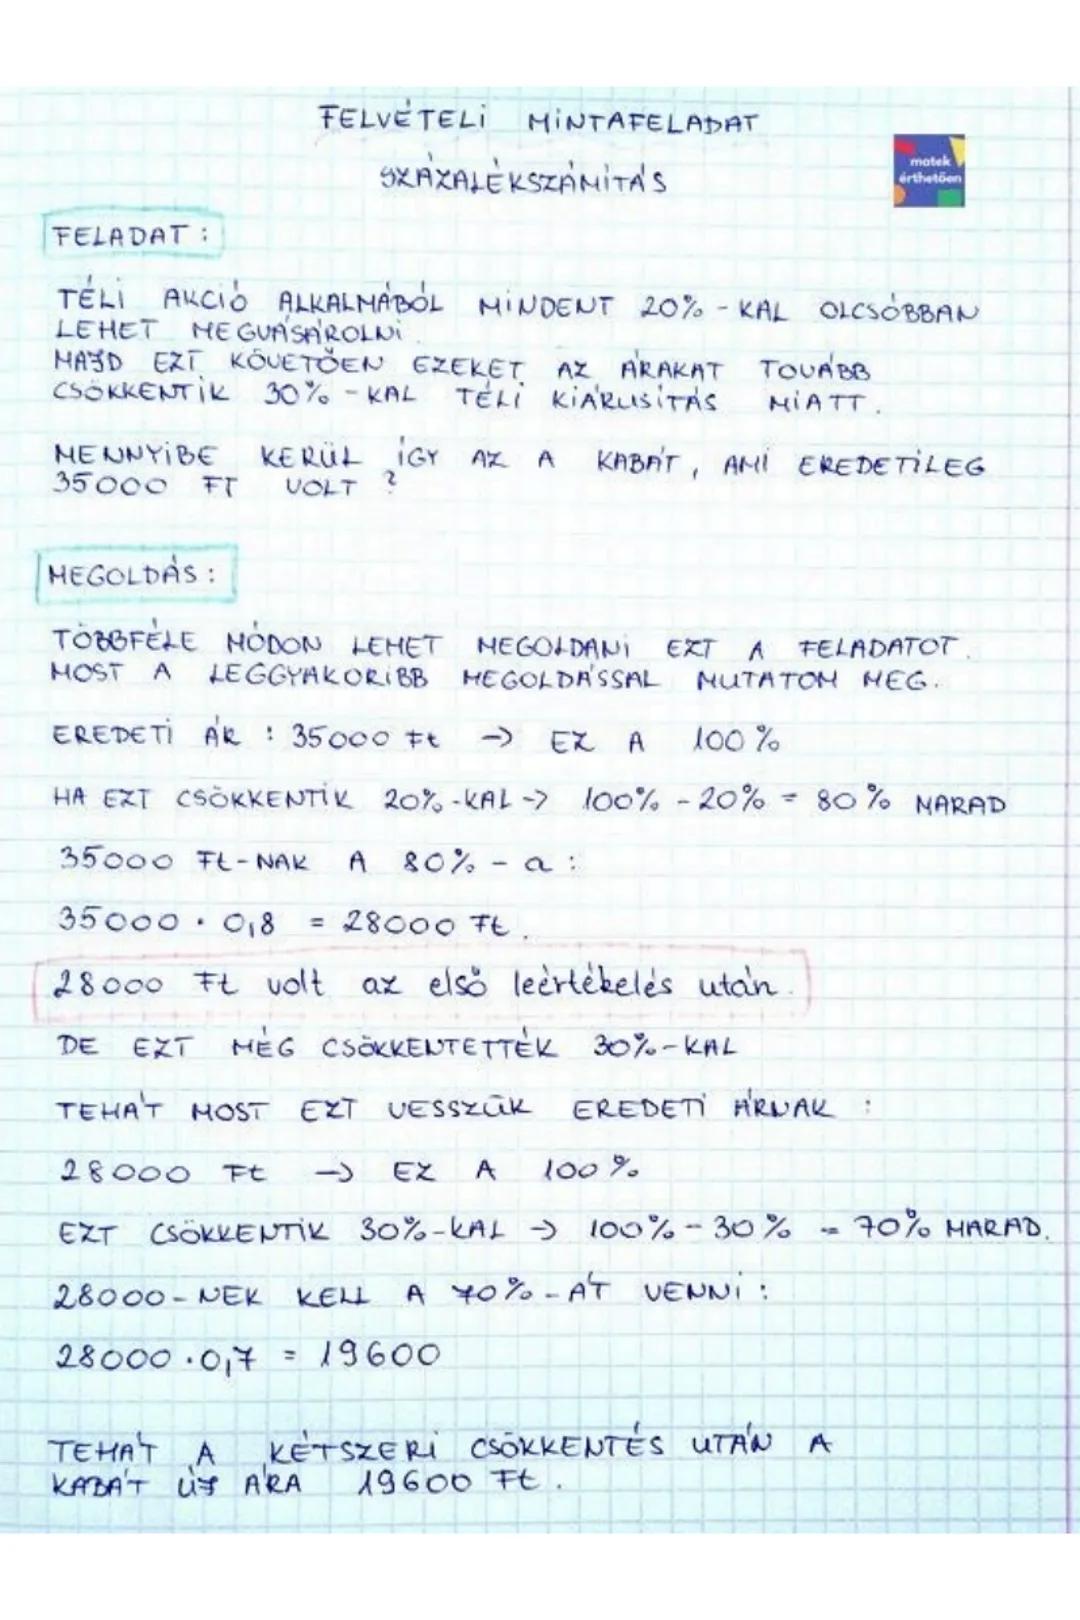 FELVÉTELI MINTAFELADAT
SZÁZALÉKSZÁMÍTÁS
matek
érthetően
FELADAT:
TÉLI AKCIÓ ALKALMÁBÓL MINDENT 20%-KAL OLCSÓBBAN
LEHET MEGVÁSÁROLNI.
MAJD EZT KÖVETŐEN EZEKET AZ ÁRAKAT TOVÁBB
CSÖKKENTIK 30%-KAL TÉLI KIÁRUSÍTÁS MIATT.
MENNYIBE KERÜL ÍGY AZ A KABÁT, AMI EREDETILEG
35000 FT VOLT?
MEGOLDÁS:
TÖBBFÉLE MÓDON LEHET MEGOLDANI EZT A FELADATOT.
MOST A LEGGYAKORIBB MEGOLDÁSSAL MUTATOM MEG.
EREDETI ÁR: 35000 Ft → EZ A 100%
HA EZT CSÖKKENTIK 20%-KAL → 100% - 20% = 80% MARAD
35000 Ft-NAK A 80%-a:
35000 · 0,8 = 28000 Ft.
28000 Ft volt az első leértékelés után.
DE EZT MÉG CSÖKKENTETTÉK 30%-KAL
TEHÁT MOST EZT VESSZÜK EREDETI ÁRNAK:
28000 Ft → EZ A 100%
EZT CSÖKKENTIK 30%-KAL → 100% - 30% = 70% MARAD.
28000-NEK KELL A 70%-ÁT VENNI:
28000 · 0,7 = 19600
TEHÁT A KÉTSZERI CSÖKKENTÉS UTÁN A
KABÁT ÚJ ÁRA 19600 Ft.